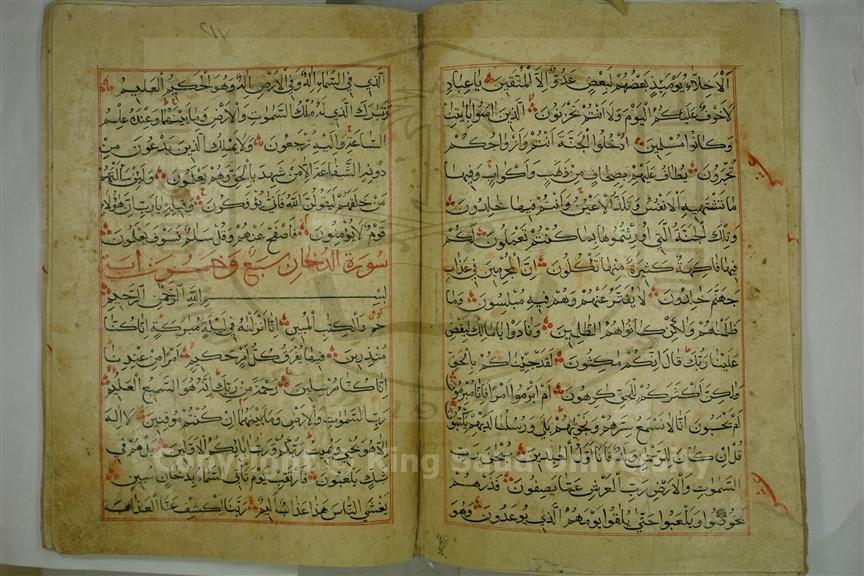 الاخلاء يومئذ بعضهم لبعض عدو الا المتقين يا عباد
لا خوف عليكم اليوم ولا انتم تحزنون الذين امنوا باياتنا
وكانوا مسلمين ادخلوا الجنة انتم وازواجكم
تحبرون يطاف عليهم بصحاف من ذهب واكواب وفيها
ما تشتهيه الانفس وتلذ الاعين وانتم فيها خالدون
وتلك الجنة التي اورثتموها بما كنتم تعملون لكم
فيها فاكهة كثيرة منها تاكلون ان المجرمين في عذاب
جهنم خالدون لا يفتر عنهم وهم فيه مبلسون وما
ظلمناهم ولكن كانوا هم الظلمين ونادوا يا مالك ليقض
علينا ربك قال انكم مكثون لقد جئناكم بالحق
ولكن اكثركم للحق كرهون ام ابرموا امرا فانا مبرمون
ام يحسبون انا لا نسمع سرهم ونجويهم بلى ورسلنا لديهم يكتبون
قل ان كان للرحمن ولد فانا اول العبدين سبحن رب
السموت والارض رب العرش عما يصفون فذرهم
يخوضوا ويلعبوا حتى يلقوا يومهم الذي يوعدون وهو
٢١٧
الذي في السماء اله وفي الارض اله وهو الحكيم العليم
وتبرك الذي له ملك السموت والارض وما بينهما وعنده علم
الساعة واليه ترجعون ولا يملك الذين يدعون من
دونه الشفاعة الا من شهد بالحق وهم يعلمون ولئن سالتهم
من خلقهم ليقولن الله فانى يؤفكون وقيله يارب ان هؤلاء
قوم لا يؤمنون فاصفح عنهم وقل سلم فسوف يعلمون
سورة الدخان سبع وخمسون اية
بسم الله الرحمن الرحيم
حم والكتب المبين انا انزلنه في ليلة مبركة انا كنا
منذرين فيها يفرق كل امر حكيم امرا من عندنا
انا كنا مرسلين رحمة من ربك انه هو السميع العليم
رب السموت والارض وما بينهما ان كنتم موقنين لا اله
الا هو يحي ويميت ربكم ورب ابائكم الاولين بل هم في
شك يلعبون فارتقب يوم تاتي السماء بدخان مبين
يغشى الناس هذا عذاب اليم ربنا اكشف عنا العذاب
Copyright © King Saud University